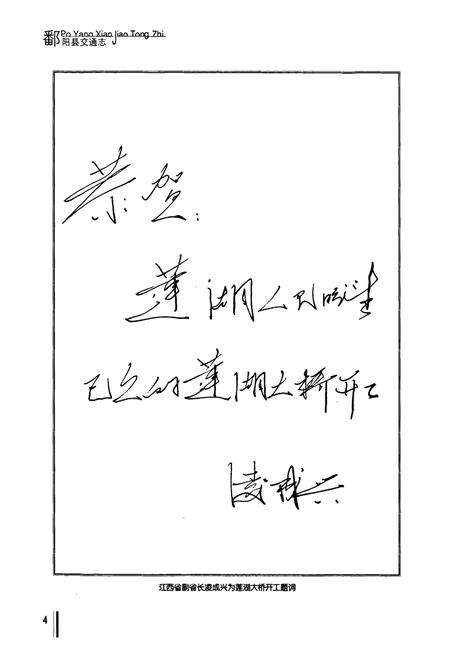 Po Yang Xian Jiao Tong Zhi
鄱阳县交通志
恭贺：
莲湖人民盼望
已久的莲湖大桥开工
凌成兴
江西省副省长凌成兴为莲湖大桥开工题词
4